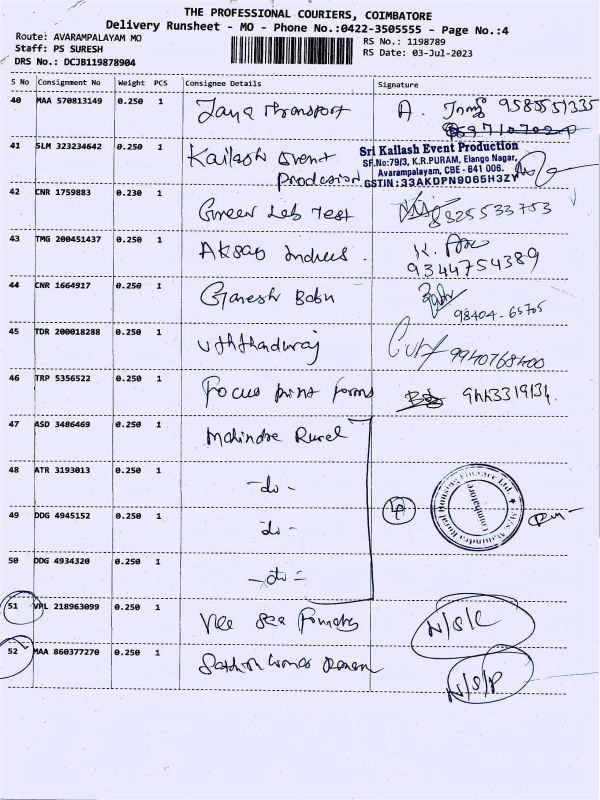 THE PROFESSIONAL COURIERS, COIMBATORE
Delivery Runsheet - MO - Phone No.:0422-3505555 - Page No.:4
Route: AVARAMPALAYAM MO
Staff: PS SURESH
DRS No.: DCJB119878904
RS No.: 1198789
RS Date: 03-Jul-2023
S No Consignment No Weight PCS Consignee Details Signature
40 MAA 570813149 0.250 1 Jaya Transport A.
41 SLM 323234642 0.250 1 Kailash Event
Sri Kailash Event Production
SF.No:79/3, K.R.PURAM, Elango Nagar,
Avarampalayam, CBE - 641 006.
GSTIN :33AKDPN9065H3ZY
42 CNR 1759883 0.230 1 Green Leb Test 8825533753
43 TMG 200451437 0.250 1 K.
9344754389
44 CNR 1664917 0.250 1 Ganesh Babu
98404-65705
45 TDR 200018288 0.250 1 9940768400
46 TRP 5356522 0.250 1 Focus print forms
47 ASD 3486469 0.250 1 Mahindra Rural
48 ATR 3193013 0.250 1 -do-
49 DDG 4945152 0.250 1 -do-
50 DDG 4934320 0.250 1 -do-
51 VPL 218963099 0.250 1 Vee Gee N/S/C
52 MAA 860377270 0.250 1 N/S/P